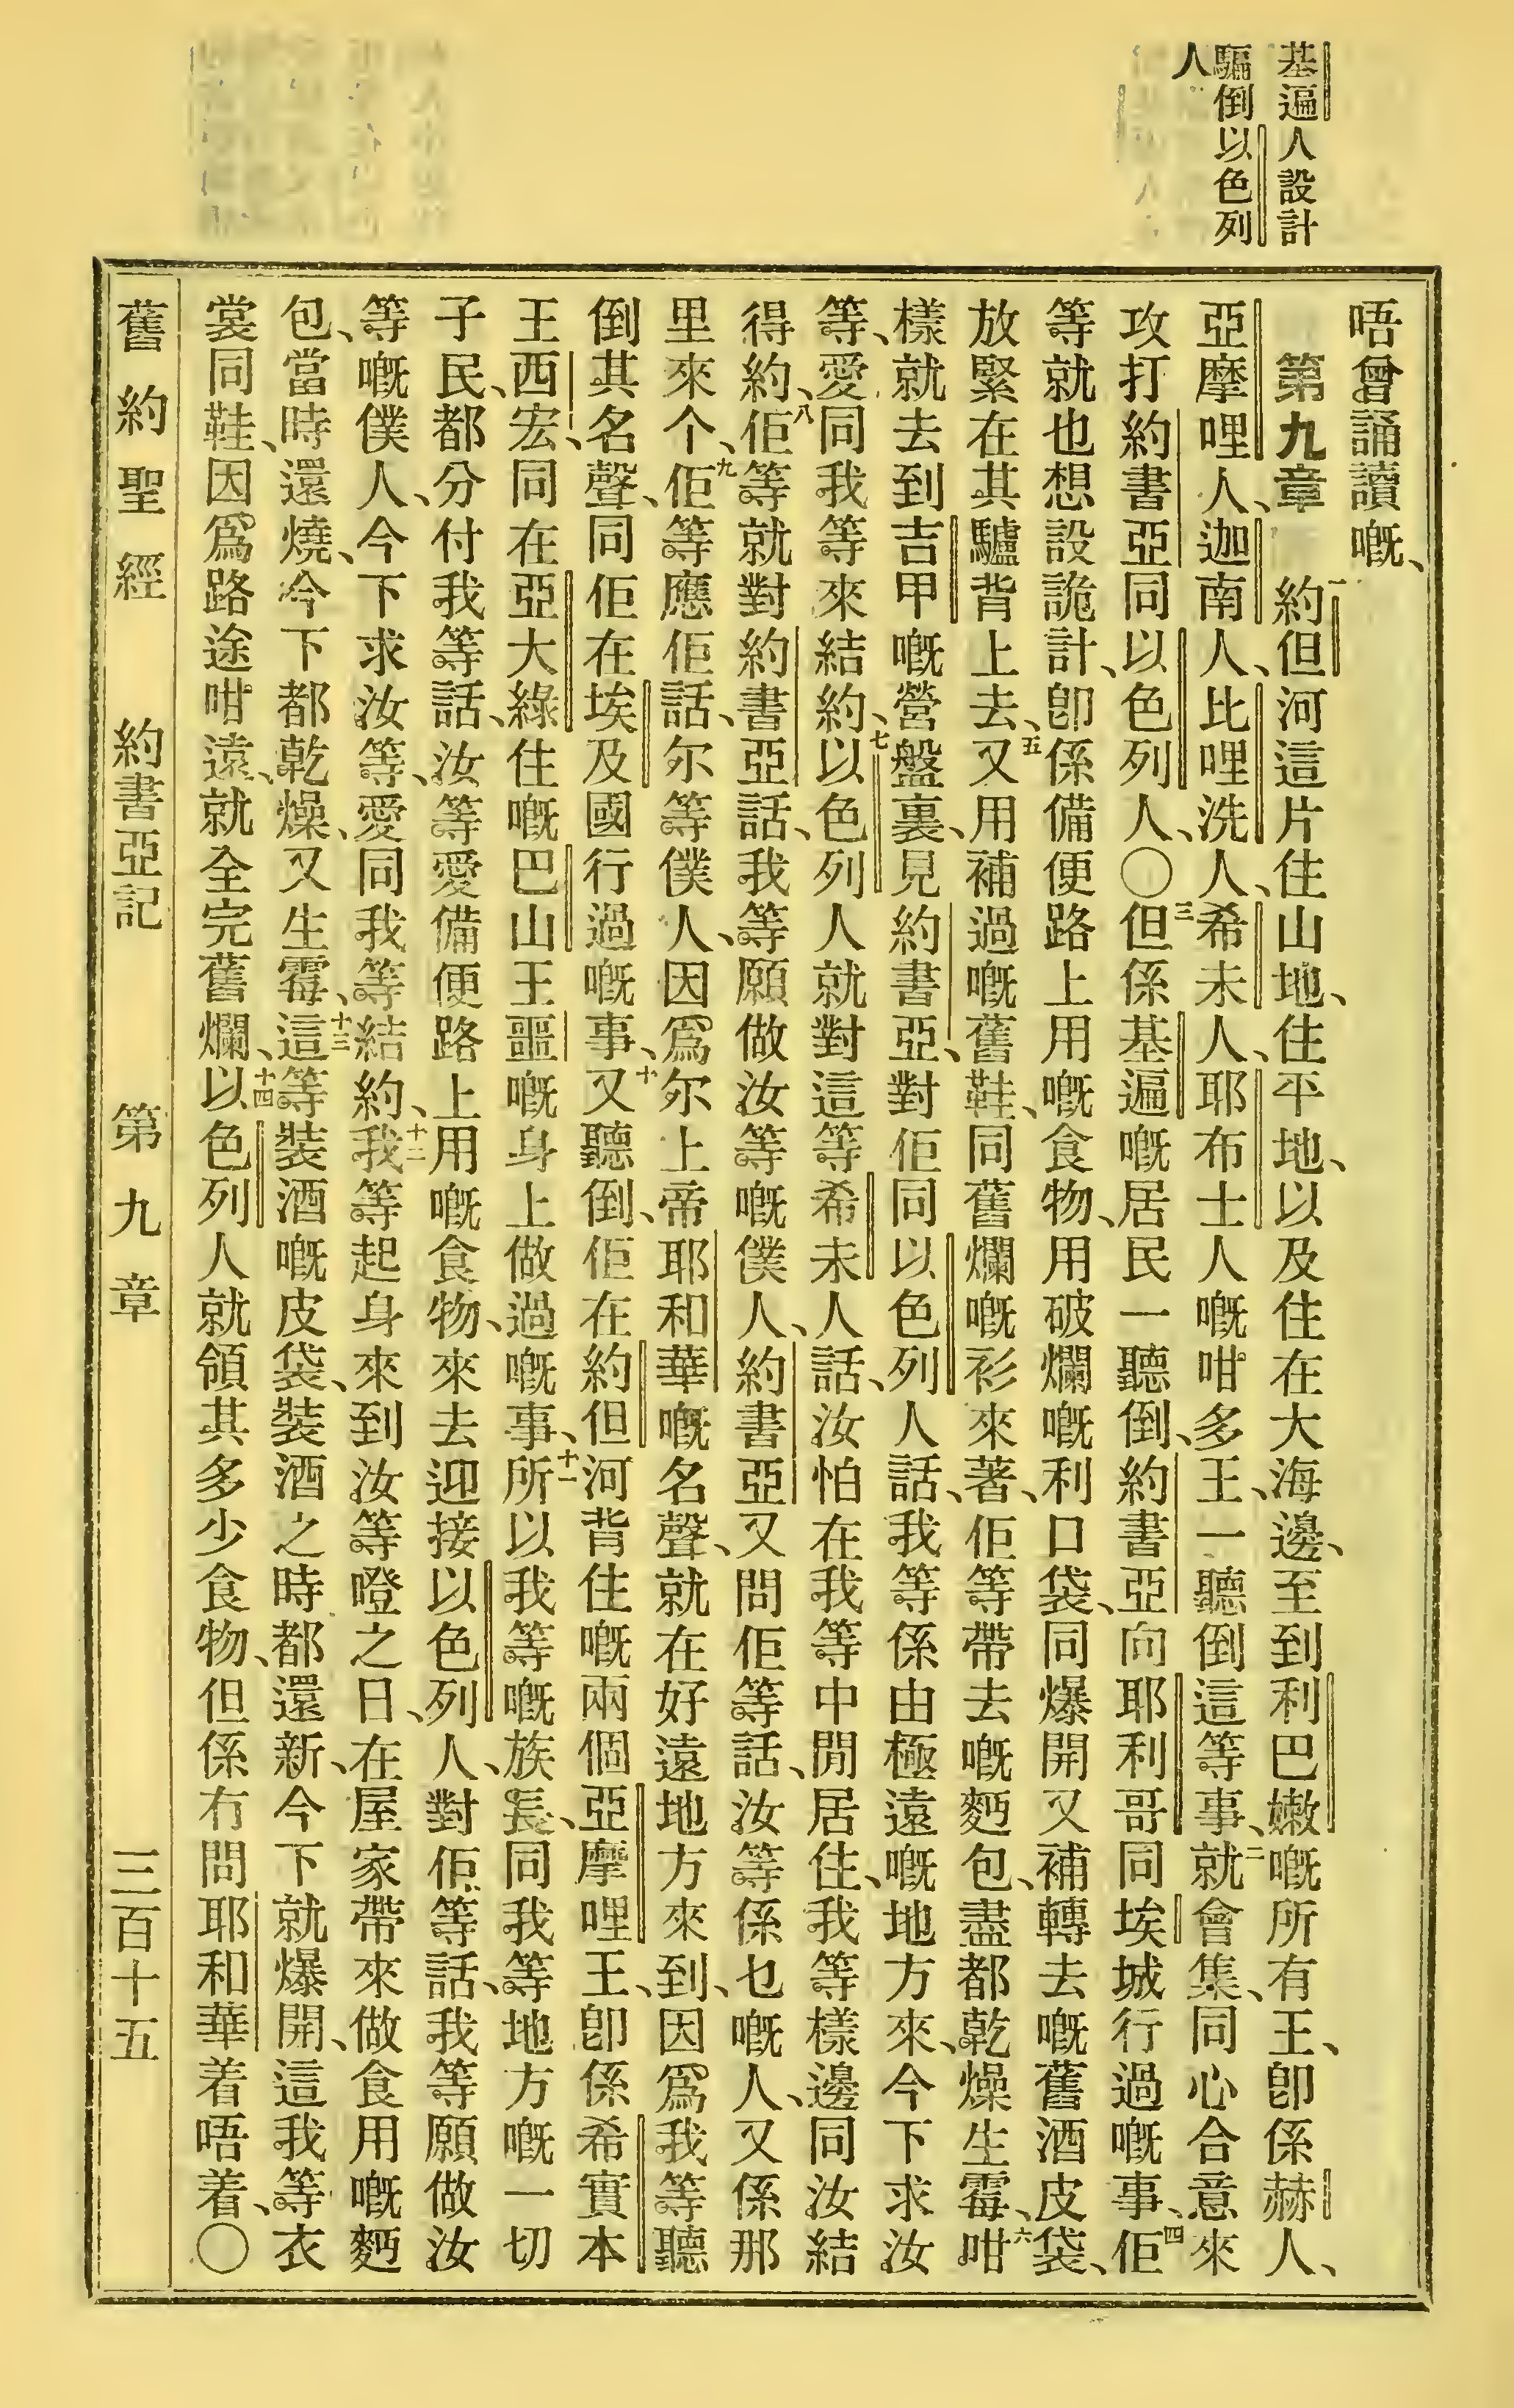 基遍人設計
騙倒以色列
人
唔曾誦讀嘅、
第九章　一約但河這片住山地、住平地、以及住在大海邊、至到利巴嫩嘅所有王、卽係赫人、
亞摩哩人、迦南人、比哩洗人、希未人、耶布士人嘅咁多王、一聽倒這等事、二就會集、同心合意來
攻打約書亞同以色列人、〇三但係基遍嘅居民一聽倒、約書亞向耶利哥同埃城行過嘅事、四佢
等就也想設詭計、卽係備便路上用嘅食物、用破爛嘅利口袋、同爆開又補轉去嘅舊酒皮袋、
放緊在其驢背上去、五又用補過嘅舊鞋、同舊爛嘅衫來著、佢等帶去嘅麪包、盡都乾燥生霉、六咁
樣就去到吉甲嘅營盤裏、見約書亞、對佢同以色列人話、我等係由極遠嘅地方來、今下求汝
等、愛同我等來結約、七以色列人就對這等希未人話、汝怕在我等中閒居住、我等樣邊同汝結
得約、八佢等就對約書亞話、我等願做汝等嘅僕人、約書亞又問佢等話、汝等係乜嘅人、又係那
里來个、九佢等應佢話、尔等僕人、因爲尔上帝耶和華嘅名聲、就在好遠地方來到、因爲我等聽
倒其名聲、同佢在埃及國行過嘅事、十又聽倒、佢在約但河背住嘅兩個亞摩哩王、卽係希實本
王西宏、同在亞大綠住嘅巴山王噩嘅身上做過嘅事、十一所以我等嘅族長、同我等地方嘅一切
子民、都分付我等話、汝等愛備便路上用嘅食物、來去迎接以色列人、對佢等話、我等願做汝
等嘅僕人、今下求汝等、愛同我等結約、十二我等起身來到汝等噔之日、在屋家帶來做食用嘅麪
包、當時還燒、今下都乾燥、又生霉、十三這等裝酒嘅皮袋、裝酒之時都還新、今下就爆開、這我等衣
裳同鞋、因爲路途咁遠、就全完舊爛、十四以色列人就領其多少食物、但係冇問耶和華着唔着、〇
舊約聖經　約書亞記　第九章　三百十五